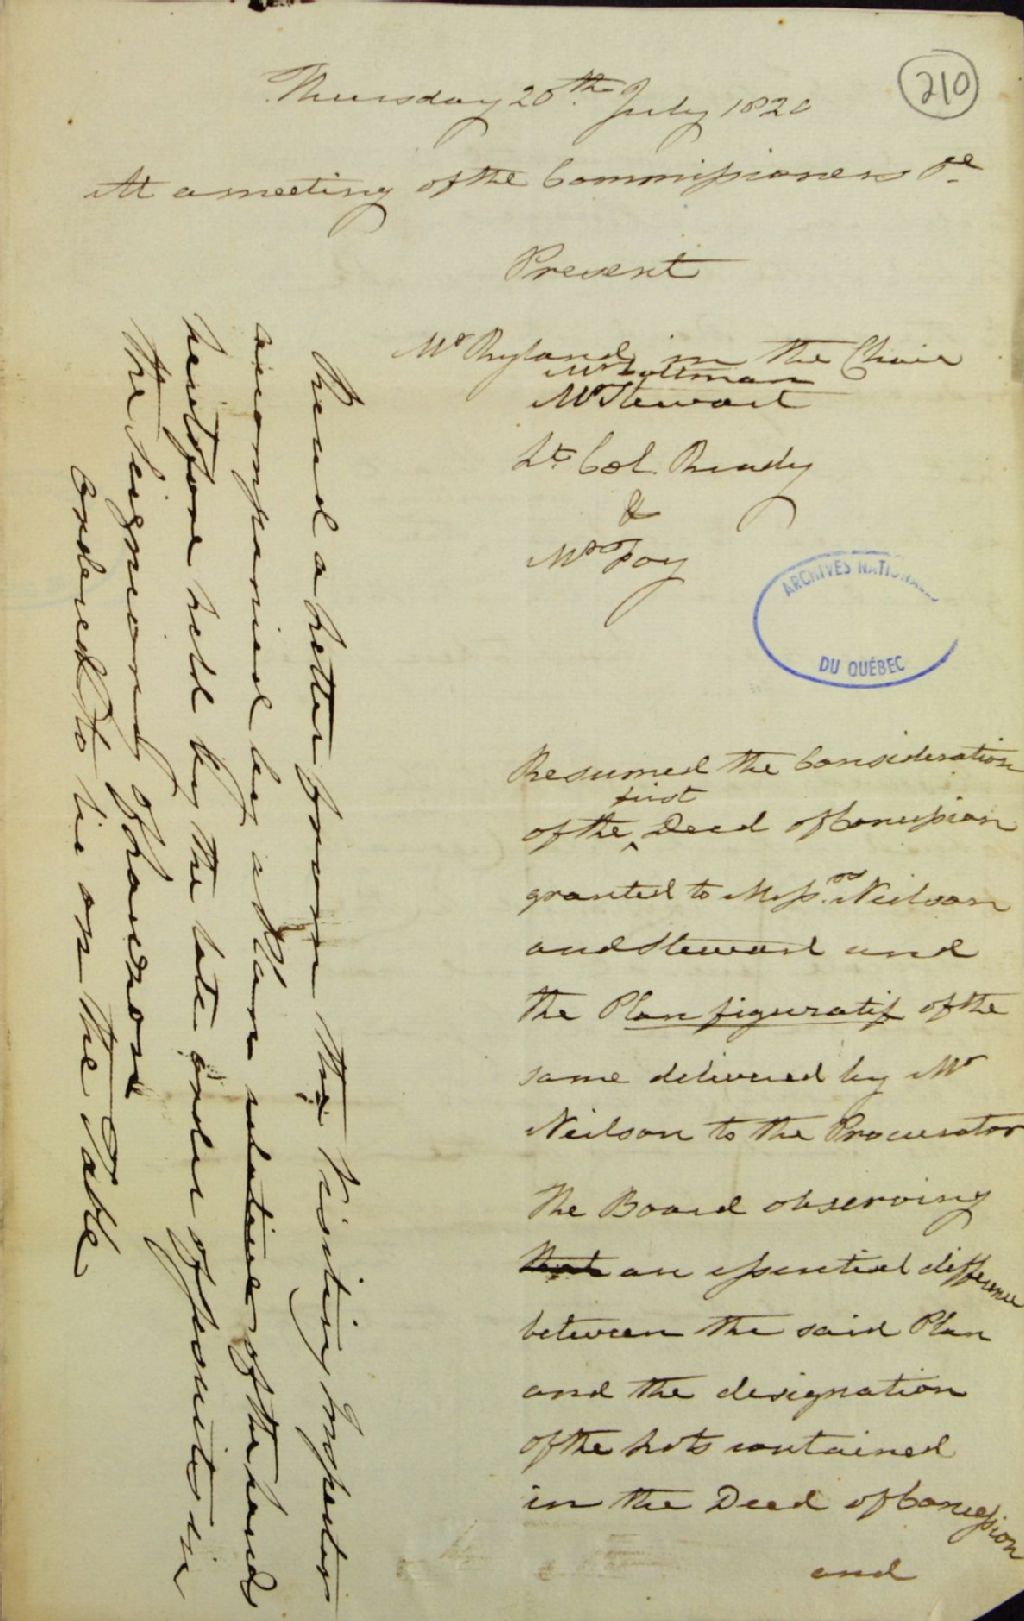 210
Thursday 20th July 1820
At a meeting of the Commissioners &c
Present
Mr Ryland in the Chair
Mr Stewart
Lt Col. Ready
&
Mr Foy
ARCHIVES NATIONALES
DU QUÉBEC
Resumed the Consideration
first
of the ^ Deed of Concession
granted to Messrs Neilson
and Stewart and
the Plan figuratif of the
same delivered by Mr
Neilson to the Procurator
The Board observing
that an essential difference
between the said Plan
and the designation
of the Lots contained
in the Deed of Concession
and
Read a Letter from the Visiting Inspector
accompanied by a Plan relative of the Lands
heretofore held by the late order of Jesuits in
the Seigniory of Lauzon
Ordered to lie on the Table